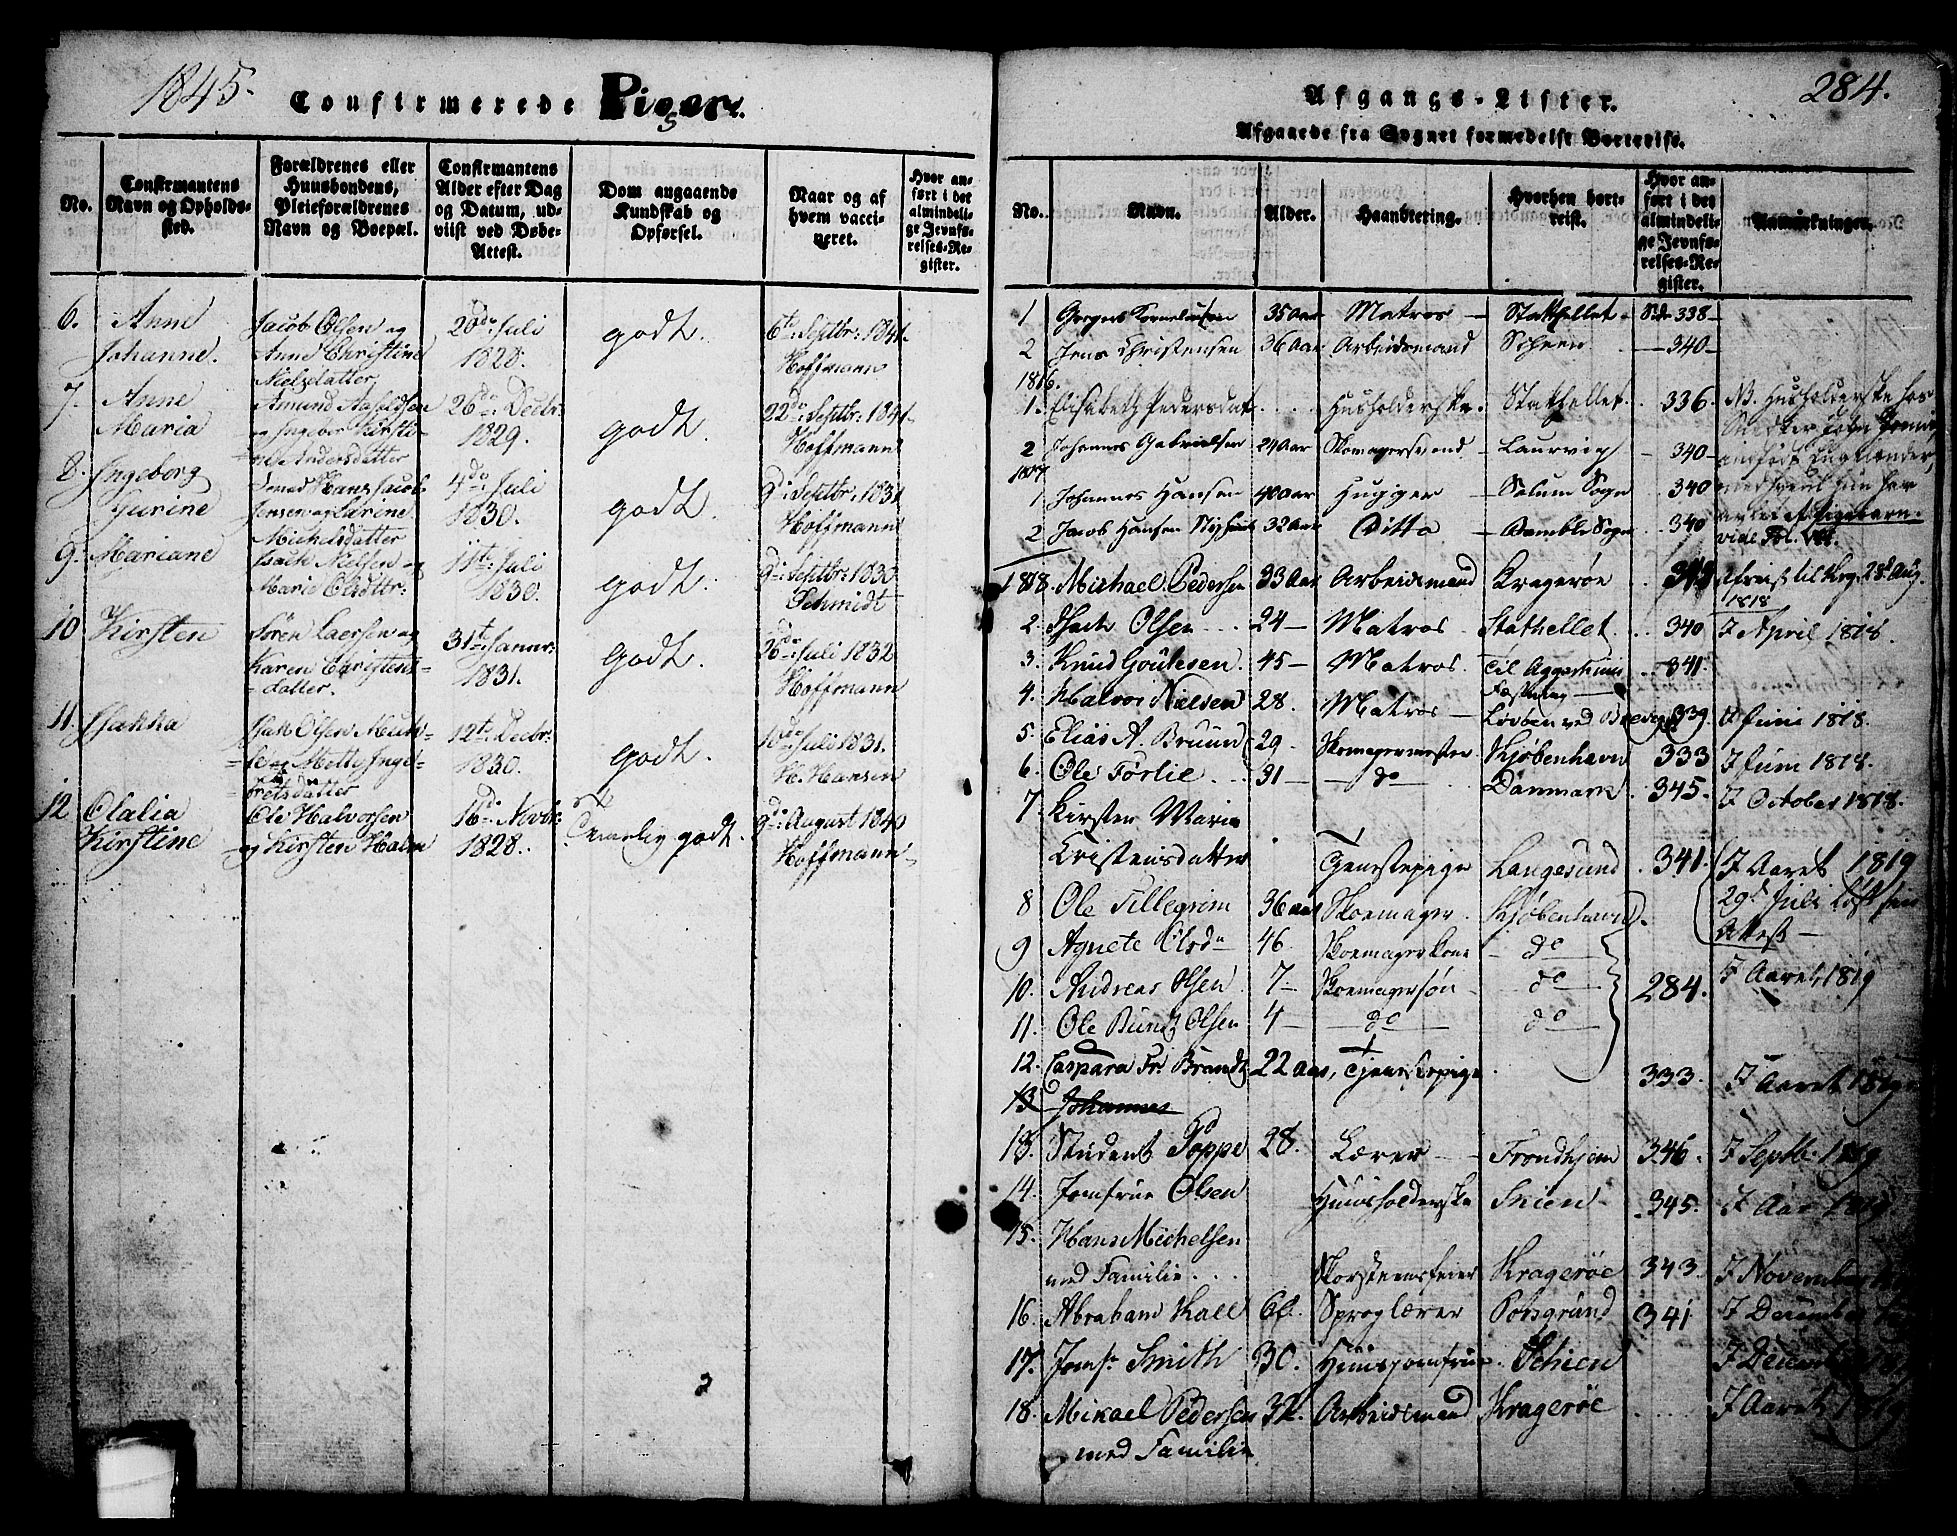 1845.
Confirmerede Piger.
No.
Confirmantens Navn og Opholdssted.
Forældrenes eller Huusbondens, Pleieforældrenes Navn og Boepæl.
Confirmantens Alder efter Dag og Datum, udviist ved Døbe-Attest.
Dom angaaende Kundskab og Opførsel.
Naar og af hvem vaccineret.
Hvor anført i det almindelige Jevnførelses-Register.
6. Anne Jacob Olsen og 20de Juli godt. 6te Septbr: 1841.
Johanne. Anne Christine 1828. Hoffmann
Nielsdatter
7. Anne Amund Aslaksen 26de Decbr: godt. 22de Septbr: 1841.
Maria og Ingebor Kirsti- 1829. Hoffmann
ne Andersdatter
8. Ingeborg Hans Jacob 4de Juli godt. 9de Septbr: 1831
Gurine Jensen og Karine 1830. Hoffmann
Michelsdatter
9. Mariane Isach Nielsen og 11te Juli godt. 9de Septbr: 1830
Marie Olsdttr: 1830. Schmidt
10 Kirsten Søren Laersen og 31te Januar: godt. 26de Juli 1832
Karen Christens- 1831. Hoffmann
datter.
11. Isak Olsen 12te Decbr: godt. 10de Juli 1831.
og Motte Ingel- 1830. H. Hansen
bretsdatter
12 Olalia Ole Halvorsen 16de Novbr: Temmelig godt. 9de August 1840
Kirstine og Kirsten Halm 1828. Hoffmann
284.
Afgangs-Lister.
Afgaaede fra Sognet formedelst Bortreise.
No.
Navn.
Alder.
Haandtering.
Hvorhen bortreist.
Hvor anført i det almindelige Jevnførelses-Register.
Anmærkninger.
1 Gregers Korneliussen 35 Aar Matros Stathellet Side 338
2 Jens Christensen 36 Aar Arbeidsmand Scheen 340
1816.
1. Elisabeth Pedersdat. Husholderske. Stathellet. 336. NB. Husholderske hos
2 Johannes Gabrielsen 24 Aar Skomagersvend Laurvig 340
1817
1 Johannes Hansen 40 Aar Hugger Solum Sogn 340
2 Jacob Hansen 32 Aar Ditto Bamble Sogn 340
1818. Michael Pedersen 33 Aar Arbeidsmand Kragerøe 28d Aug.
1818
2. Isach Olsen 24 Matros Stathellet 340 I April 1818.
3. Knud Goutesen. 45 Matros Til Aggershuus 341.
Fæstning
4. Halvor Nielsen 28. Matros Løvøen ved Brevig 339. I Juni 1818.
5. Elias A. Bruun 29 Skomagermester Kjøbenhavn 333 I Juni 1818.
6. Ole Førlie 31 do Danmark 345. I October 1818.
7. Kirsten Marie
Cristensdatter Tjenestepige Langesund 341. I Aaret 1819
8 Ole Tellegrim 36 aar Skoemager Kjøbenhavn. 29d Juli løst sin
Attest
9 Agnete Olsd. 46. Skoemagerkone do
10. Andreas Olsen 7 Skoemagersøn do 284. I Aaret 1819
11. Ole Olsen 4 do do
12. Caspara Fr. Brandt 22 aar, Tjenestepige 333. I Aaret 1819
13 Johannes
13. Student Poppe 28. Lærer Trondhjem 346. I Septb: 1819
14. Jomfrue Olsen Huusholderske Skien 345. I Aar 1819
15. Hans Michelsen
med Familie Skorsteensfeier Kragerøe 343. I November
16. Abraham Kall Sproglærer Porsgrund 341 I December
17. Jomf: Smith 30. Huusjomfrue Schien I December
18. Mikael Pedersen 32. Arbeidsmand Kragerøe I Aaret 1819
med Familie